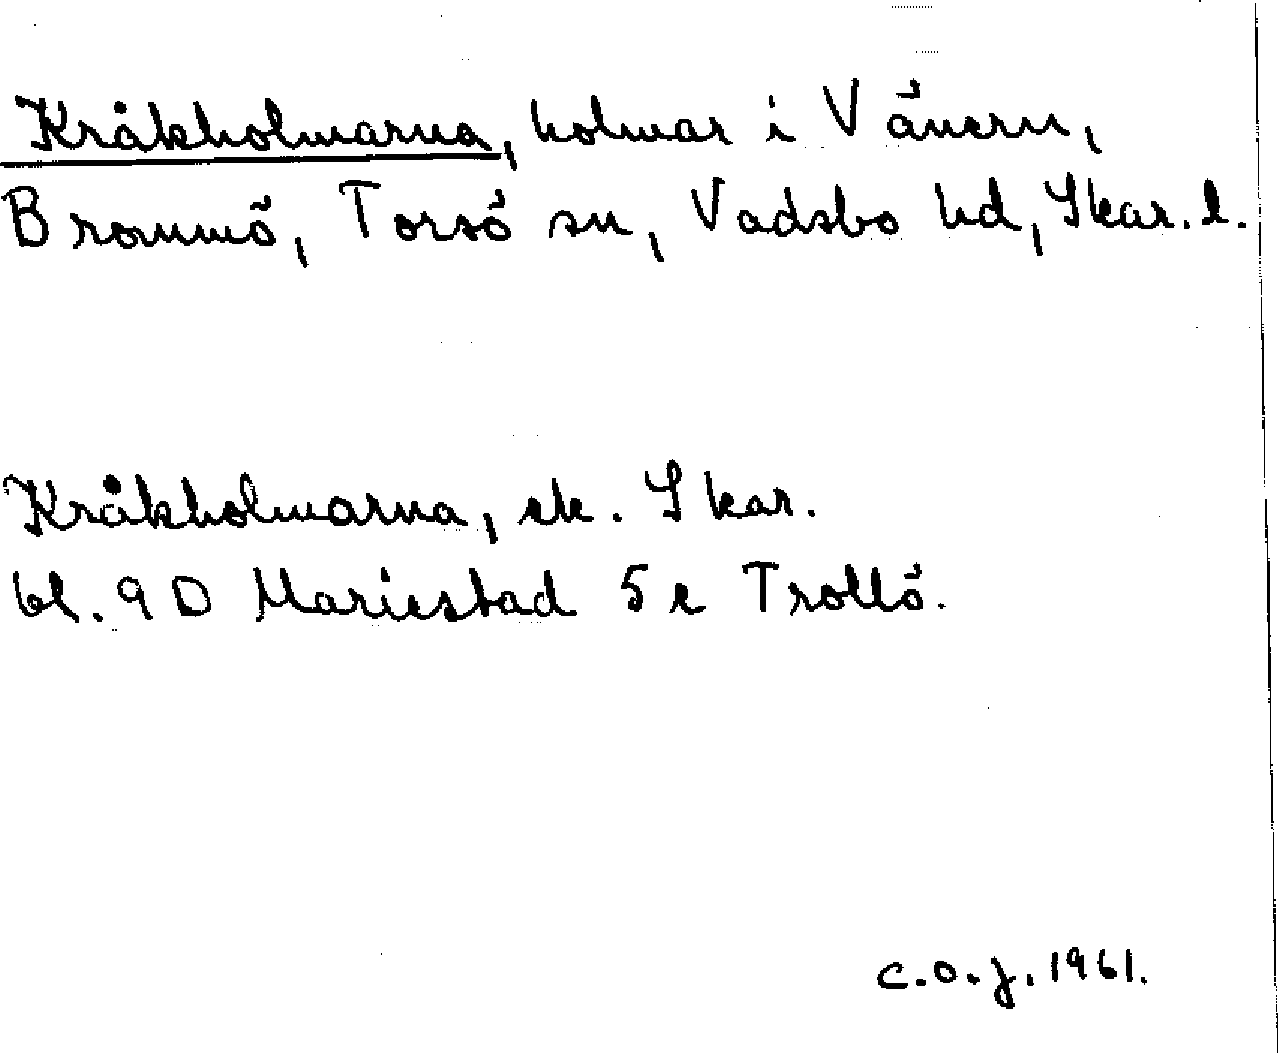 Kråkholmarna, holmar i Vänern,
Brommö, Torsö sn, Vadsbo hd, Skar. l.
Kråkholmarna, ek. Skar.
bl. 9 D Mariestad 5 e Trollö.
c.o.j. 1961.